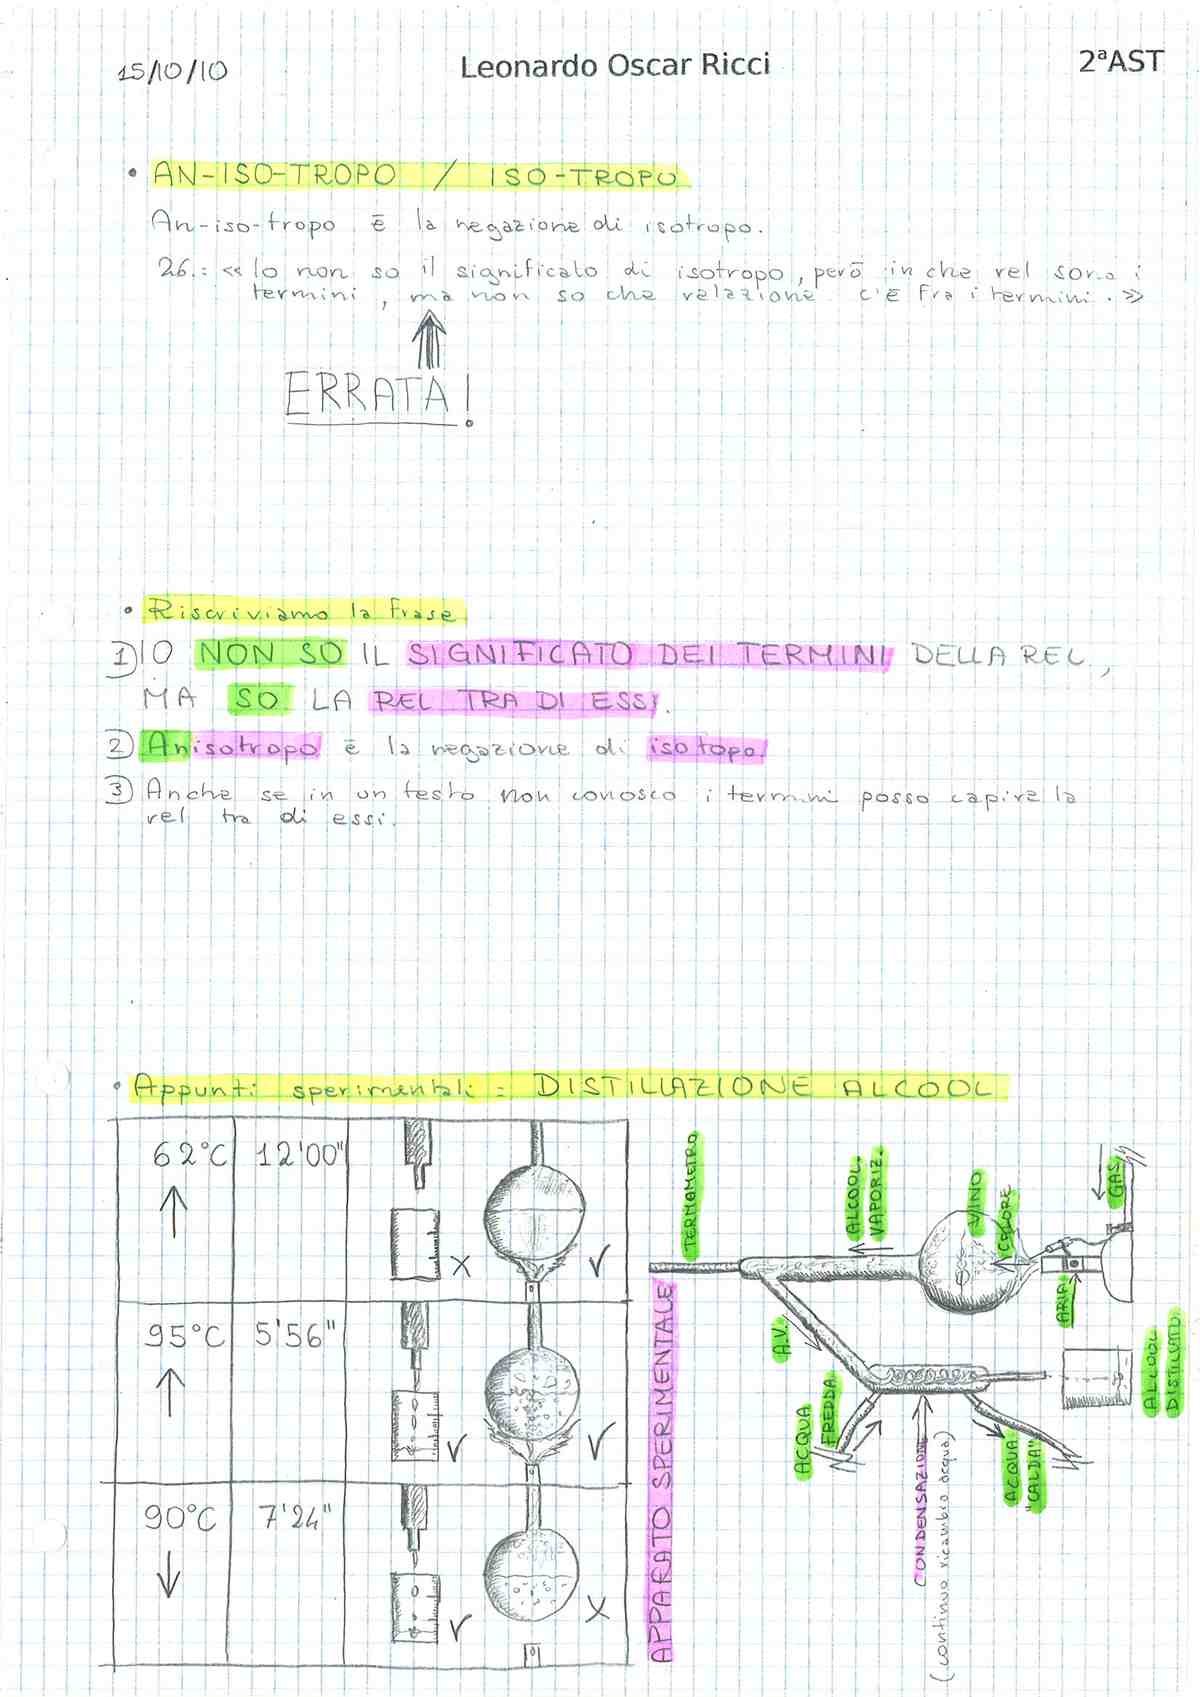 15/10/10
Leonardo Oscar Ricci
2ªAST
• AN-ISO-TROPO / ISO-TROPO
An-iso-tropo è la negazione di isotropo.
26.: «Io non so il significato di isotropo, però in che rel sono i
termini, ma non so che relazione c'è fra i termini.»
ERRATA!
• Riscriviamo la frase
1) IO NON SO IL SIGNIFICATO DEI TERMINI DELLA REL,
MA SO LA REL TRA DI ESSI.
2) Anisotropo è la negazione di isotopo.
3) Anche se in un testo non conosco i termini posso capire la
rel tra di essi.
• Appunti sperimentali: DISTILLAZIONE ALCOOL
62°C 12'00"
95°C 5'56"
90°C 7'24"
APPARATO SPERIMENTALE
TERMOMETRO
ALCOOL
VAPORIZ.
VINO
CALORE
GAS
ARIA
A.V.
ACQUA
FREDDA
CONDENSAZIONE
(continuo ricambio acqua)
ACQUA
"CALDA"
ALCOOL
DISTILLATO